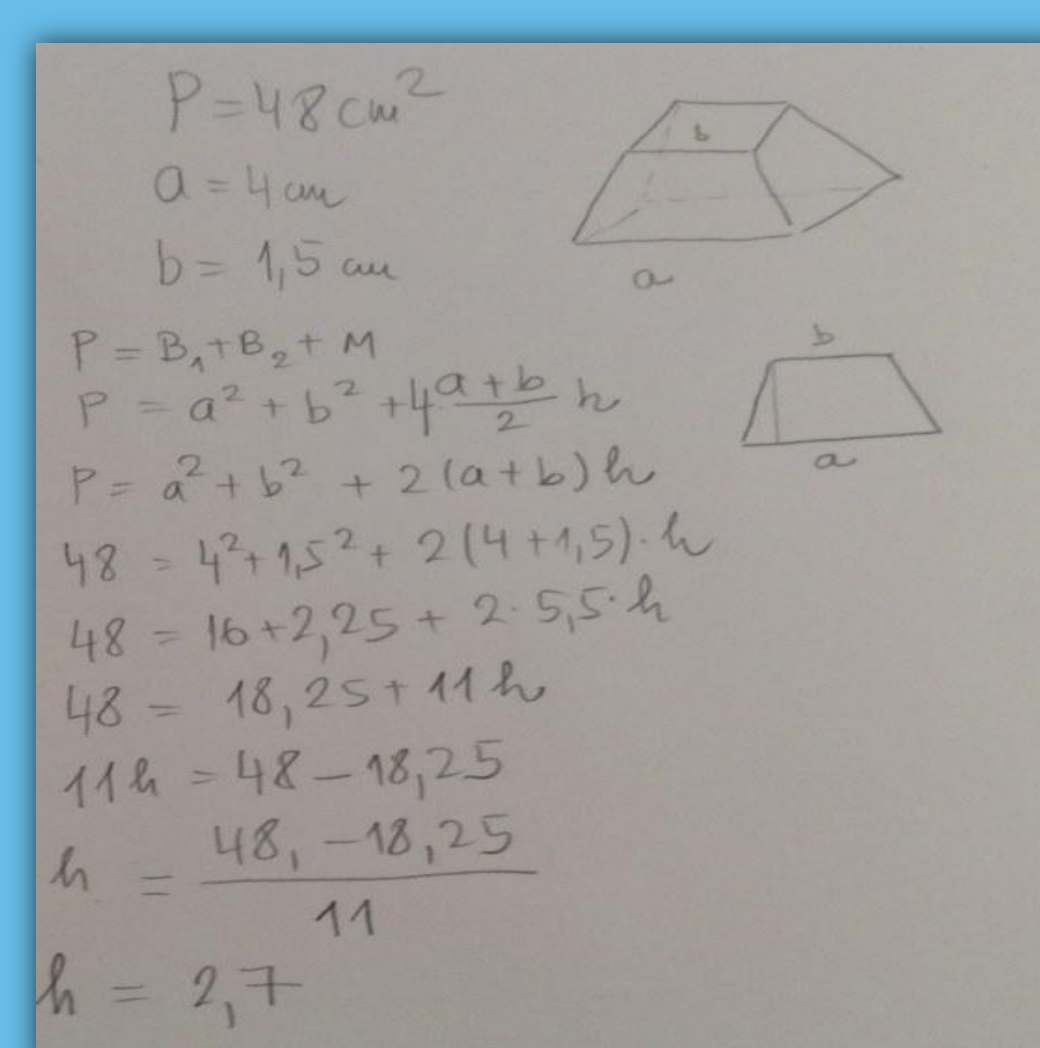 P = 48 cm²
a = 4 cm
b = 1,5 cm
b
a
P = B₁ + B₂ + M
P = a² + b² + 4 · (a + b)/2 h
b
a
P = a² + b² + 2 (a + b) h
48 = 4² + 1,5² + 2 (4 + 1,5) · h
48 = 16 + 2,25 + 2 · 5,5 · h
48 = 18,25 + 11 h
11 h = 48 – 18,25
h = (48, – 18,25)/11
h = 2,7